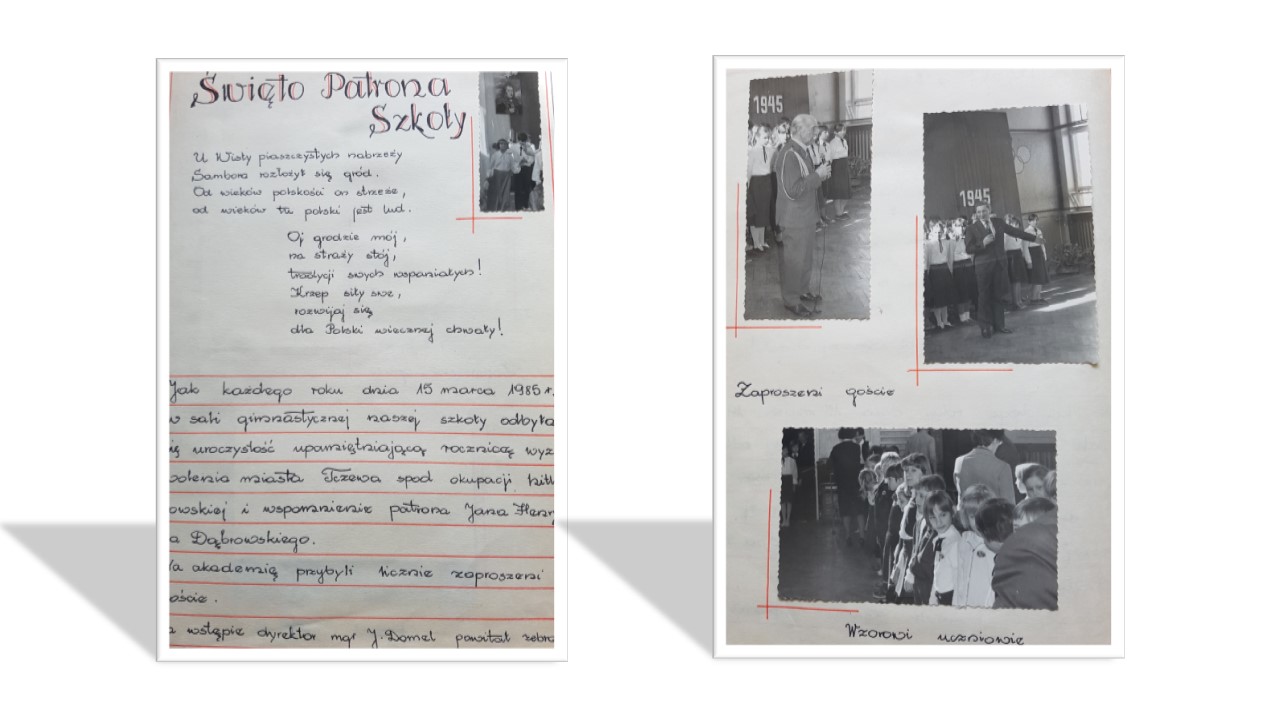 Święto Patrona
Szkoły
U Wisły piaszczystych nabrzeży
Sambora rozłożył się gród.
Od wieków polskości on strzeże,
od wieków tu polski jest lud.
Oj grodzie mój,
na straży stój,
tradycji swych wspaniałych!
Krzep siły swe,
rozwijaj się
dla Polski wiecznej chwały!
Jak każdego roku dnia 15 marca 1985 r.
w sali gimnastycznej naszej szkoły odbyła
ię uroczystość upamiętniającą rocznicę wyz
olenia miasta Tczewa spod okupacji hitl
owskiej i wspomnienie patrona Jana Henry
a Dąbrowskiego.
Na akademię przybyli licznie zaproszeni
oście.
wstępie dyrektor mgr J. Domel powitał zebra
1945
1945
Zaproszeni goście
Wzorowi uczniowie